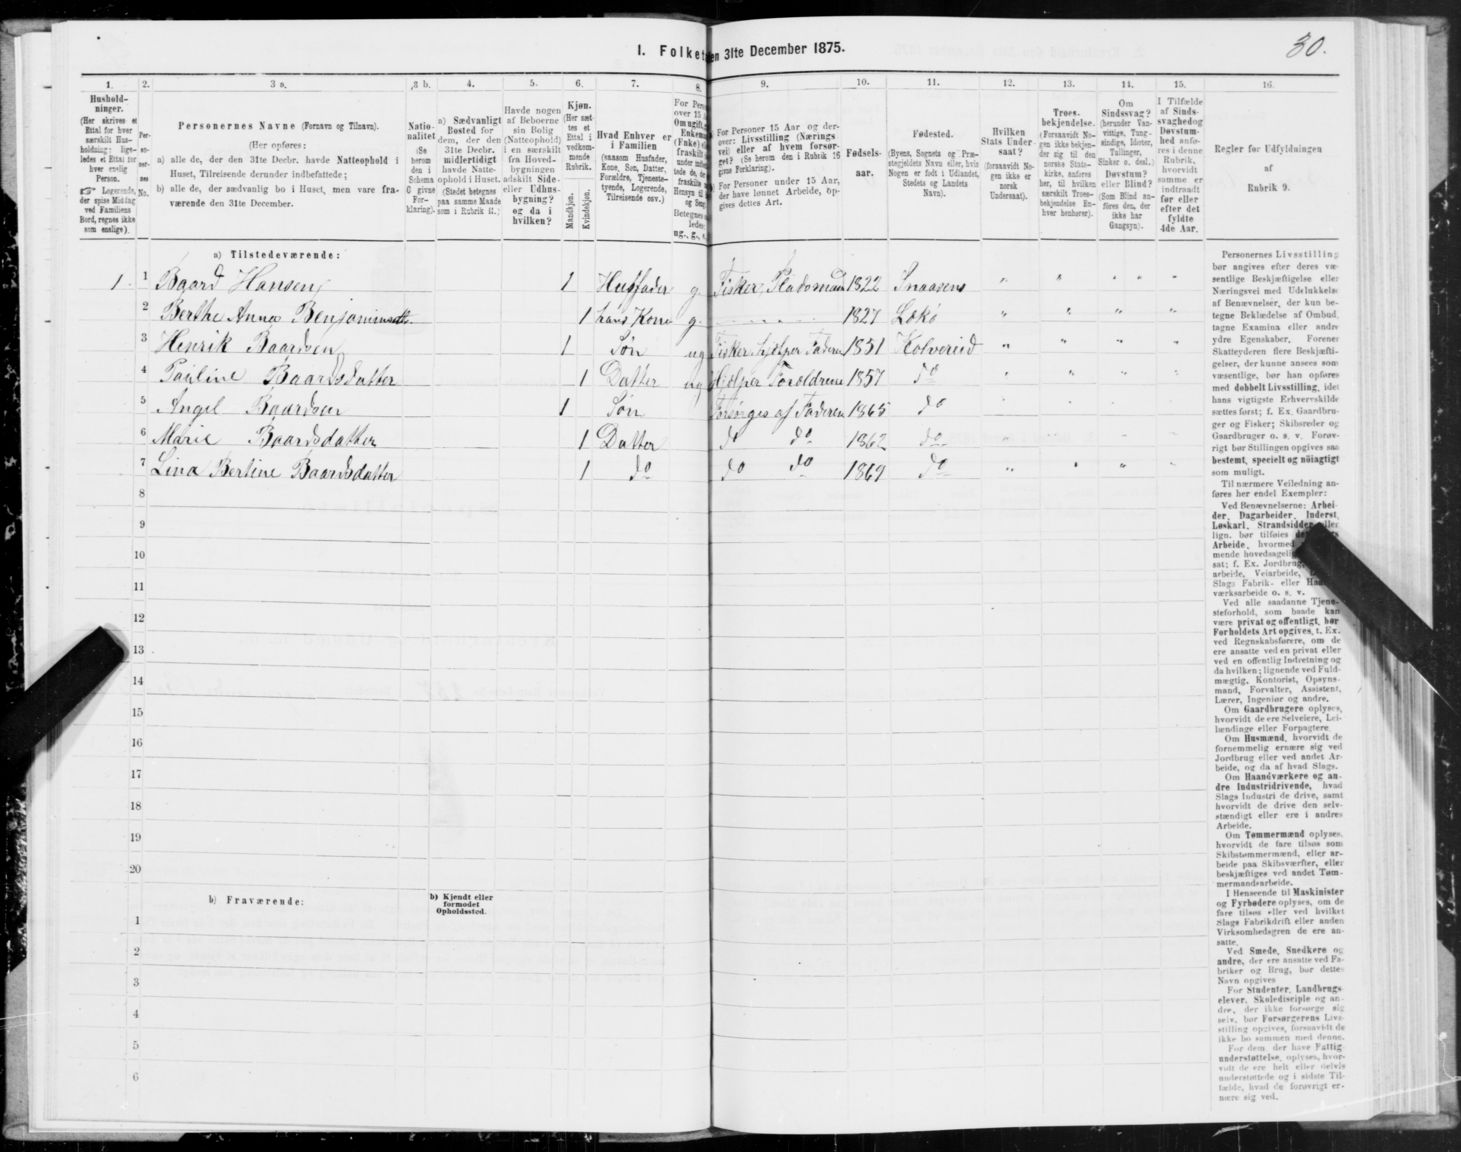 30.
I. Folket en 31te December 1875.
1. 2. 3 a. 3 b. 4. 5. 6. 7. 8. 9. 10. 11. 12. 13. 14. 15. 16.
Hushold-
ninger.
(Her skrives et
Ettal for hver
særskilt Hus-
holdning; lige-
ledes et Ettal for
hver enslig
Person.
☞ Logerende,
der spise Middag
ved Familiens
Bord, regnes ikke
som enslige).
Per-
so-
ner-
nes
No.
Personernes Navne (Fornavn og Tilnavn).
(Her opføres:
a) alle de, der den 31te Decbr. havde Natteophold i
Huset, Tilreisende derunder indbefattede;
b) alle de, der sædvanlig bo i Huset, men vare fra-
værende den 31te December.
Natio-
nalitet
(Se
herom
den i
Schema
G givne
For-
klaring).
a) Sædvanligt
Bosted for
dem, der den
31te Decbr.
midlertidigt
havde Natte-
ophold i Huset.
(Stedet betegnes
paa samme Maade
som i Rubrik 11.)
Havde nogen
af Beboerne
sin Bolig
(Natteophold)
i en særskilt
fra Hoved-
bygningen
adskilt Side-
eller Udhus-
bygning?
og da i
hvilken?
Kjøn.
(Her sæt-
tes et
Ettal i
vedkom-
mende
Rubrik.
Mandkjøn.
Kvindekjøn.
Hvad Enhver er
i Familien
(saasom Husfader,
Kone, Søn, Datter,
Forældre, Tjeneste-
tyende, Logerende,
Tilreisende osv.)
For Pers
over 15 A
Om ugift,
Enkema
(Enke) e
fraskilt
ug., g., e
For Personer 15 Aar og der-
over: Livsstilling (Nærings
vei) eller af hvem forsør-
get? (Se herom den i Rubrik 16
givne Forklaring).
For Personer under 15 Aar,
der have lønnet Arbeide, op-
gives dettes Art.
Fødsels-
aar.
Fødested.
(Byens, Sognets og Præ-
stegjeldets Navn eller, hvis
Nogen er født i Udlandet,
Stedets og Landets
Navn).
Hvilken
Stats Under-
saat?
(forsaavidt No-
gen ikke er
norsk
Undersaat).
Troes-
bekjendelse.
(Forsaavidt No-
gen ikke bekjen-
der sig til den
norske Stats-
kirke, anføres
her, til hvilken
særskilt Troes-
bekjendelse En-
hver henhører).
Om
Sindssvag?
(herunder Van-
vittige, Tung-
sindige, Idioter,
Tullinger,
Sinker o. desl.)
Døvstum?
eller Blind?
(Som Blind an-
føres den, der
ikke har
Gangsyn).
I Tilfælde
af Sinds-
svaghed og
Døvstum-
hed anfø-
res i denne
Rubrik,
hvorvidt
samme er
indtraadt
før eller
efter det
fyldte
4de Aar.
Regler for Udfyldningen
af
Rubrik 9.
a) Tilstedeværende:
1. 1 Baard Hansen 1 Husfader g. Fisker, Pladsmand 1822 Snaasens " " " " "
2 Berthe Anna Benjaminsdtr. 1 hans Kone g. 1827 Lekø " " " "
3 Henrik Baardsen 1 Søn ug Fisker hjelper Faderen 1851 Kolvereid " " " "
4 Pauline Baardsdatter 1 Datter ug Hjelper Forældrene 1857 do " " " "
5 Angel Baardsen 1 Søn Forsørges af Faderen 1865 do
6 Marie Baardsdatter 1 Datter do do 1862 do
7 Lina Bertine Baardsdatter 1 do do do 1869 do " " " "
8
9
10
11
12
13
14
15
16
17
18
19
20
b) Fraværende:
b) Kjendt eller
formodet
Opholdssted.
1
2
3
4
5
6
Personernes Livsstilling
bør angives efter deres væ-
sentlige Beskjæftigelse eller
Næringsvei med Udelukkelse
af Benævnelser, der kun be-
tegne Beklædelse af Ombud,
tagne Examina eller andre
ydre Egenskaber. Forener
Skatteyderen flere Beskjæfti-
gelser, der kunne ansees som
væsentlige, bør han opføres
med dobbelt Livsstilling, idet
hans vigtigste Erhvervskilde
sættes først; f. Ex. Gaardbru-
ger og Fisker; Skibsreder og
Gaardbruger o. s. v. Forøv-
rigt bør Stillingen opgives saa
bestemt, specielt og nöiagtigt
som muligt.
Til nærmere Veiledning an-
føres her endel Exempler:
Ved Benævnelserne: Arbei-
der, Dagarbeider, Inderst,
Løskarl, Strandsidder eller
lign. bør tilføies
Arbeide, hvormed
mende hovedsagelig
sat; f. Ex. Jordbrug,
arbeide, Veiarbeide,
Slags Fabrik- eller
værksarbeide o. s. v.
Ved alle saadanne Tjene-
steforhold, som baade kan
være privat og offentligt, bør
Forholdets Art opgives, t. Ex.
ved Regnskabsførere, om de
ere ansatte ved en privat eller
ved en offentlig Indretning og
da hvilken; lignende ved Fuld-
mægtig, Kontorist, Opsyns-
mand, Forvalter, Assistent,
Lærer, Ingeniør og andre.
Om Gaardbrugere oplyses,
hvorvidt de ere Selveiere, Lei-
lændinge eller Forpagtere.
Om Husmænd, hvorvidt de
fornemmelig ernære sig ved
Jordbrug eller ved andet Ar-
beide, og da af hvad Slags.
Om Haandværkere og an-
dre Industridrivende, hvad
Slags Industri de drive, samt
hvorvidt de drive den selv-
stændigt eller ere i andres
Arbeide.
Om Tømmermænd oplyses,
hvorvidt de fare tilsøs som
Skibstømmermænd, eller ar-
beide paa Skibsværfter, eller
beskjæftiges ved andet Tøm-
mermandsarbeide.
I Henseende til Maskinister
og Fyrbødere oplyses, om de
fare tilsøs eller ved hvilket
Slags Fabrikdrift eller anden
Virksomhedsgren de ere an-
satte.
Ved Smede, Snedkere og
andre, der ere ansatte ved Fa-
briker og Brug, bør dettes
Navn opgives
For Studenter, Landbrugs-
elever, Skoledisciple og an-
dre, der ikke forsørge sig
selv, bør Forsørgerens Livs-
stilling opgives, forsaavidt de
ikke bo sammen med denne.
For dem, der have Fattig-
understøttelse, oplyses, hvor-
vidt de ere helt eller delvis
understøttede og i sidste Til-
fælde, hvad de forøvrigt er-
nære sig ved.